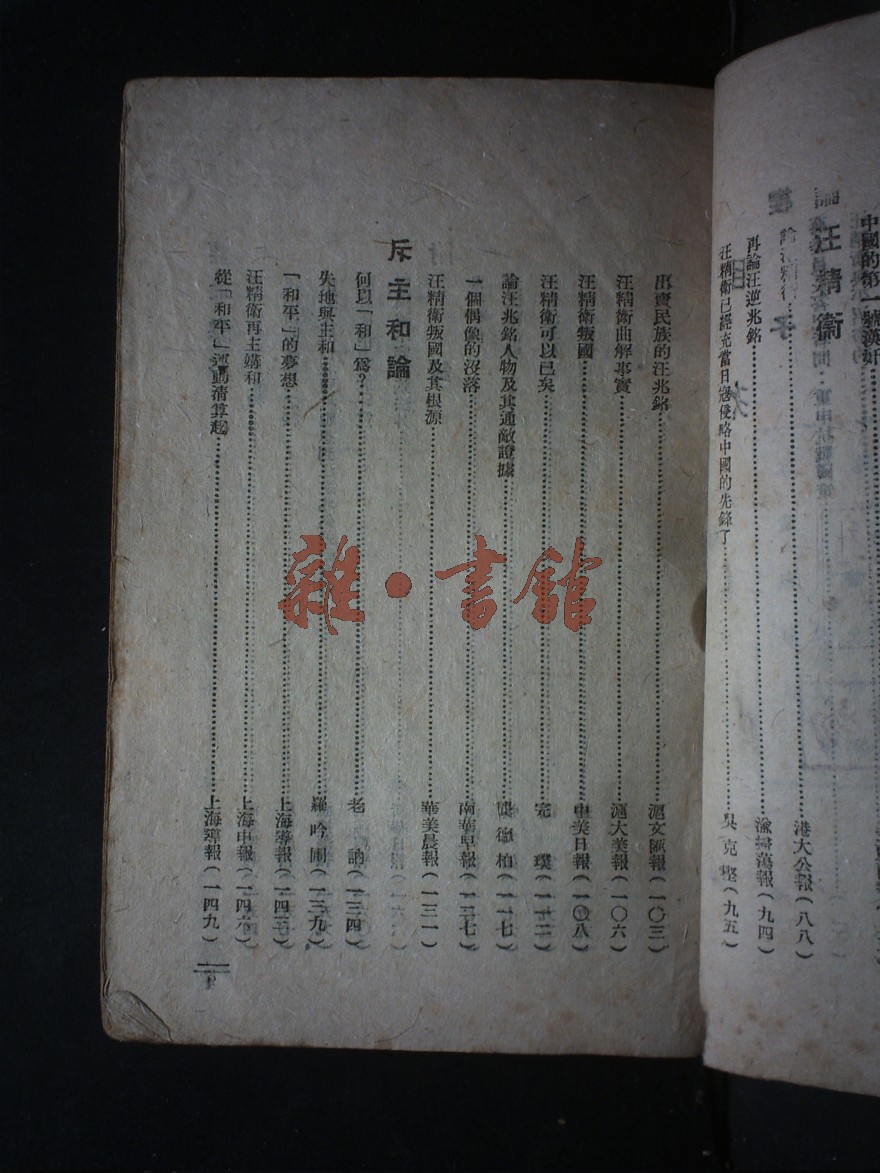 中國的第一號漢奸
論汪精衛
港大公報(八八)
再論汪逆兆銘 渝掃蕩報(九四)
汪精衛已經充當日寇侵略中國的先鋒了 吳克堅(九五)
出賣民族的汪兆銘 滬文匯報(一〇三)
汪精衛曲解事實 滬大美報(一〇六)
汪精衛叛國 中美日報(一〇八)
汪精衛可以已矣 完璞(一一二)
論汪兆銘人物及其通敵證據 龔德柏(一一七)
一個偶像的沒落 南華早報(一二七)
汪精衛叛國及其根源 華美晨報(一三一)
斥主和論
何以「和」爲? 老訥(一三四)
失地與主和 羅吟圃(一三九)
「和平」的夢想 上海導報(一四三)
汪精衛再主媾和 上海申報(一四六)
從「和平」運動清算起 上海導報(一四九)
雜·書館